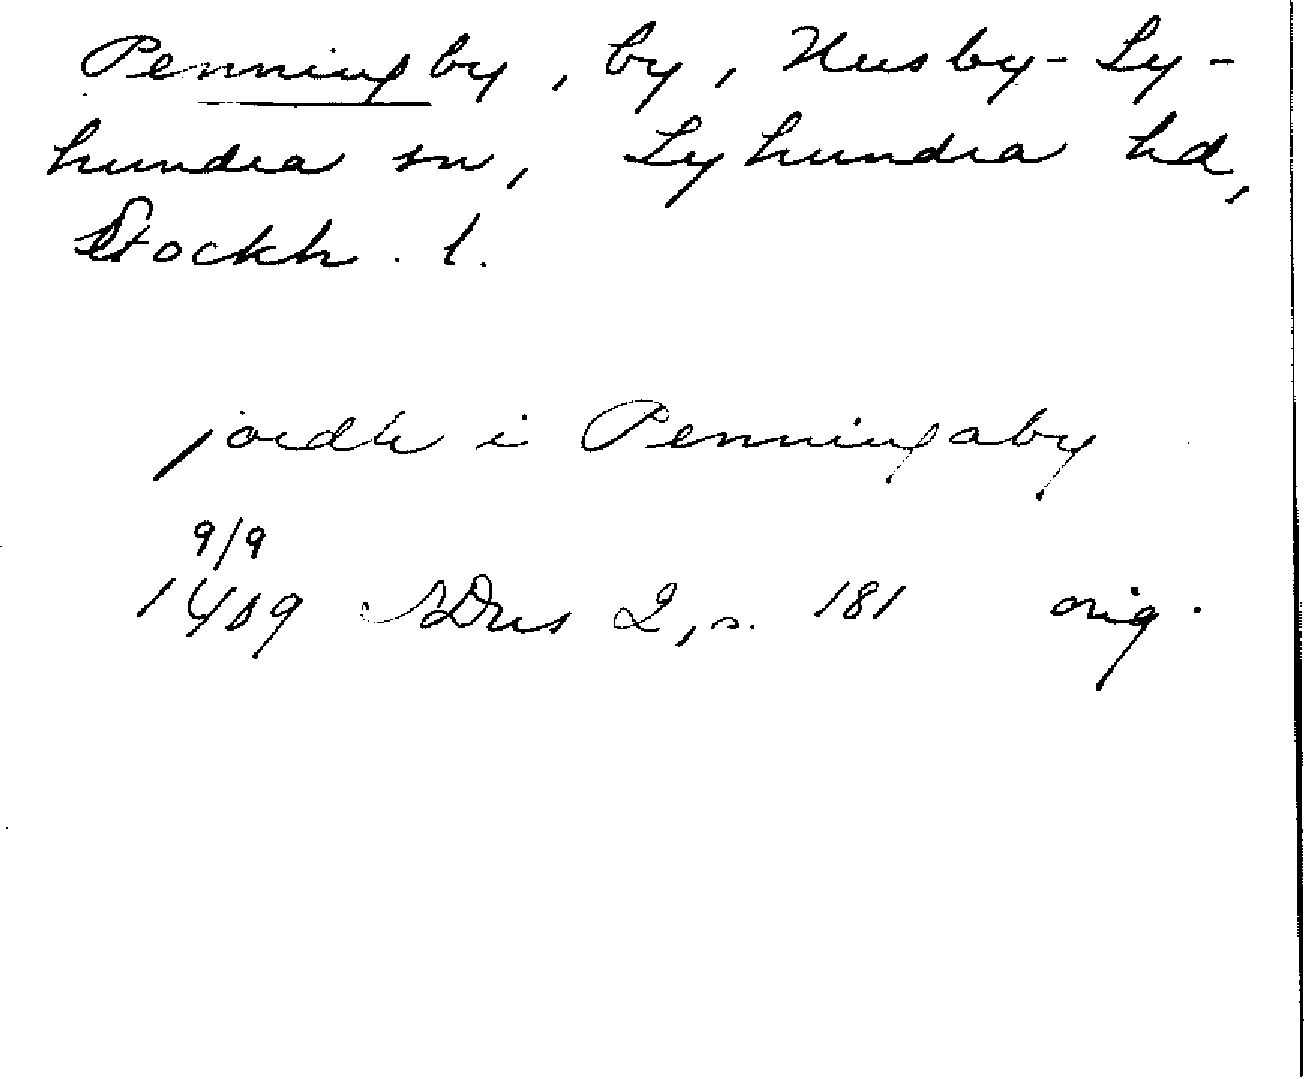 Penningby, by, Husby-Ly-
hundra sn, Lyhundra hd,
Stockh. l.
jordh i Penningaby
9/9
1409 SDns 2, s. 181 orig.